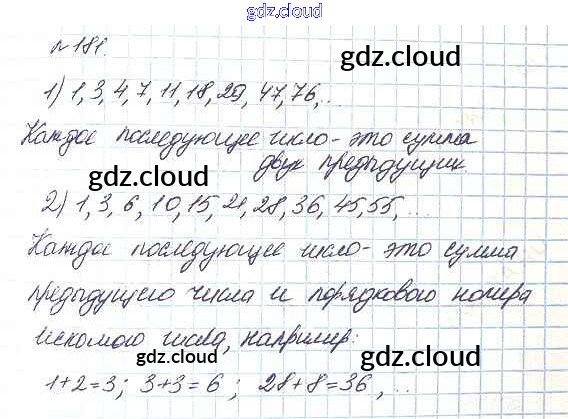 gdz.cloud
№ 181.
gdz.cloud
1) 1, 3, 4, 7, 11, 18, 29, 47, 76, ...
Каждое последующее число - это сумма
двух предыдущих.
gdz.cloud
2) 1, 3, 6, 10, 15, 21, 28, 36, 45, 55, ...
gdz.cloud
Каждое последующее число - это сумма
предыдущего числа и порядкового номера
искомого числа, например:
gdz.cloud
gdz.cloud
1+2=3; 3+3=6; 28+8=36, ...
gdz.cloud